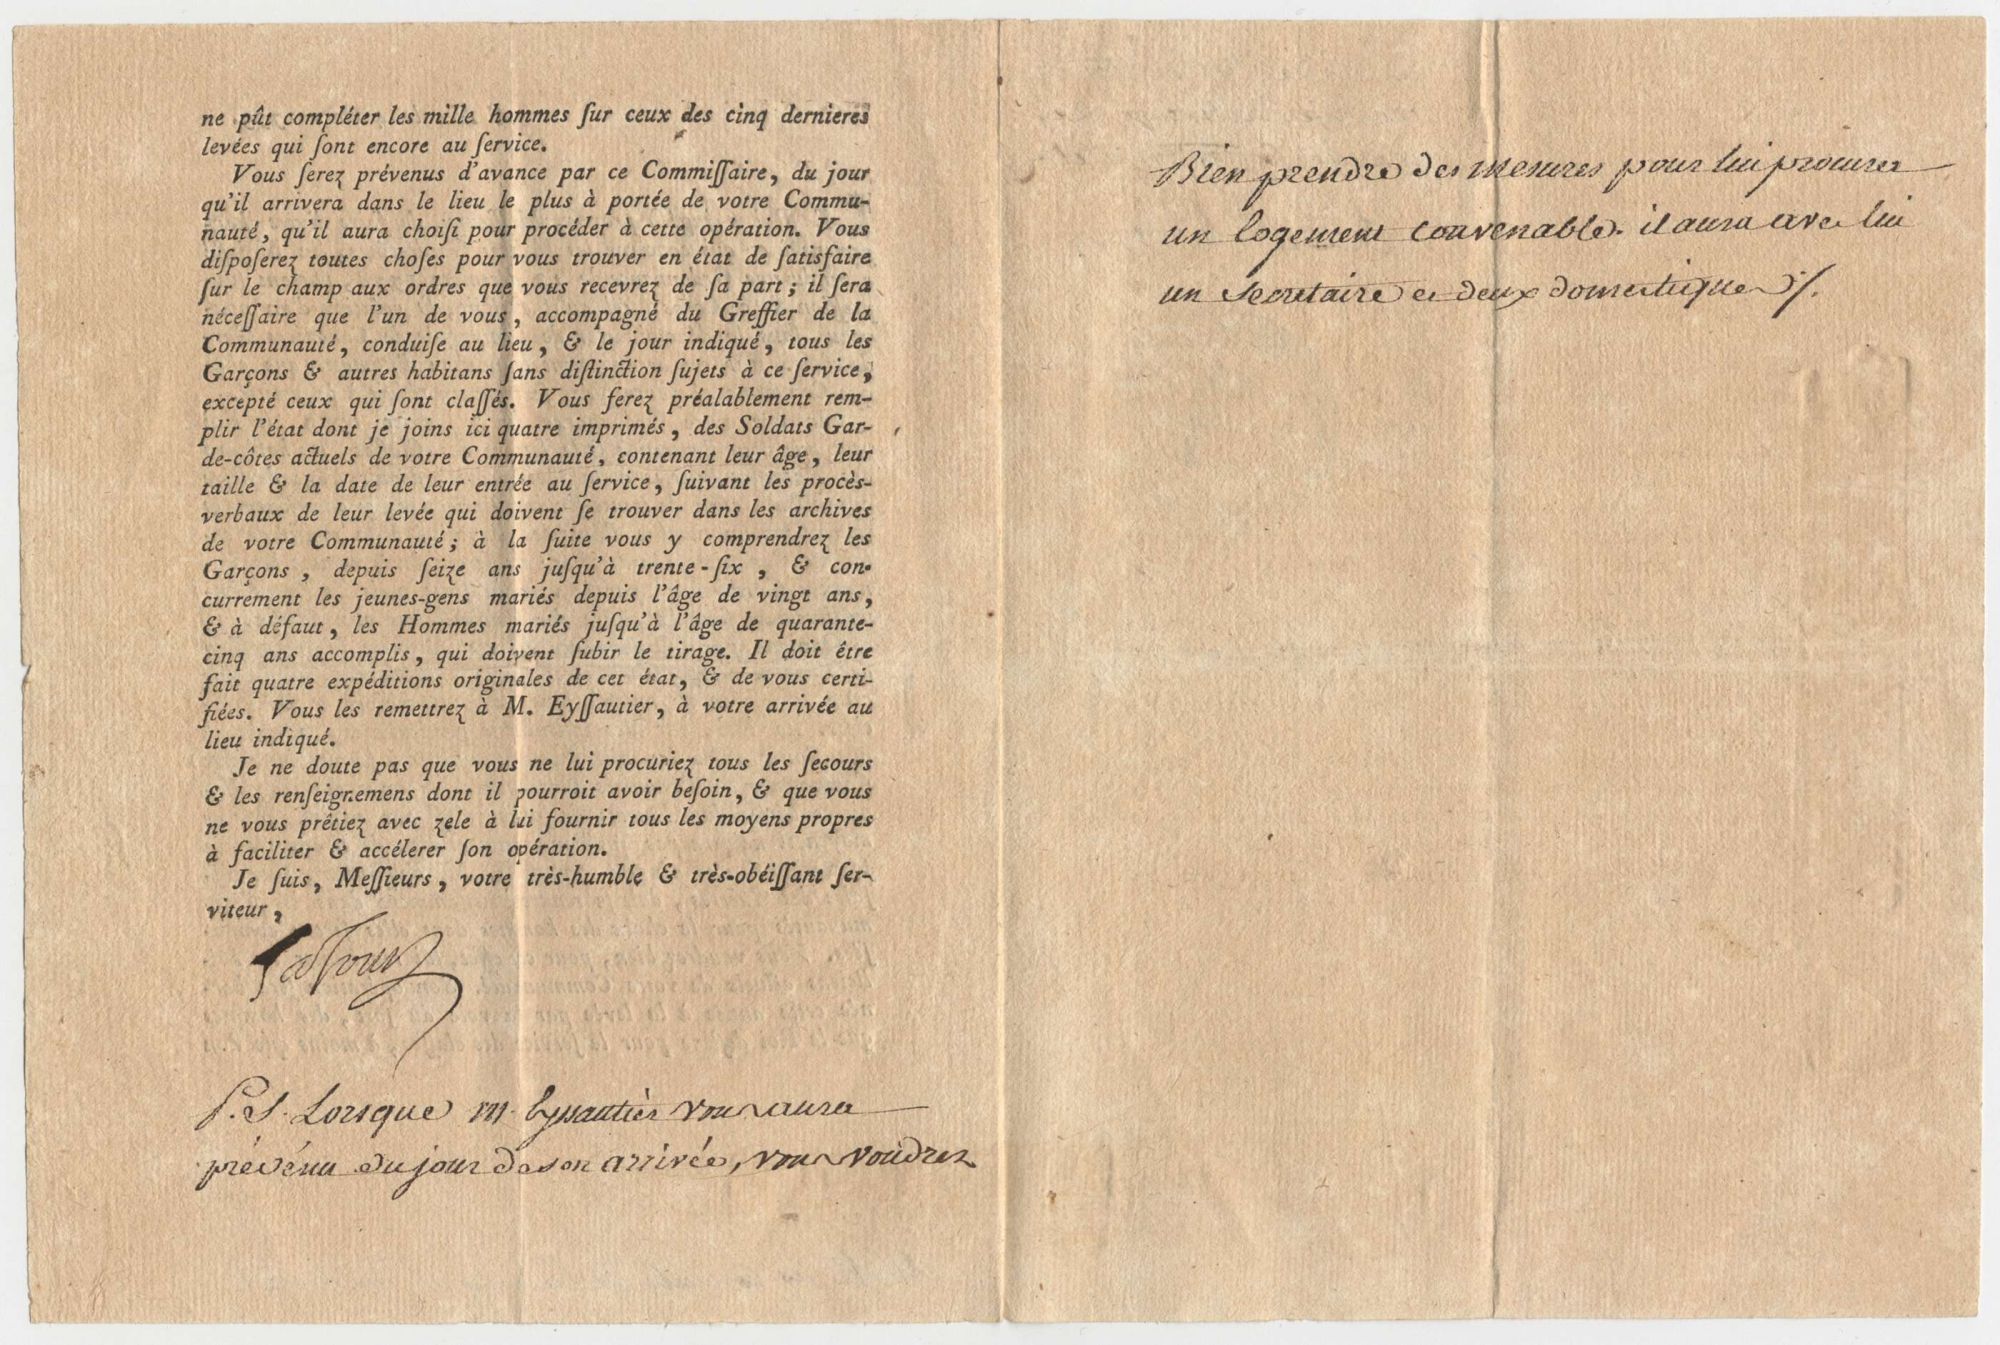 ne pût compléter les mille hommes ſur ceux des cinq dernieres
levées qui ſont encore au ſervice.
Vous ſerez prévenus d'avance par ce Commiſſaire, du jour
qu'il arrivera dans le lieu le plus à portée de votre Commu-
nauté, qu'il aura choiſi pour procéder à cette opération. Vous
diſpoſerez toutes choſes pour vous trouver en état de ſatisfaire
ſur le champ aux ordres que vous recevrez de ſa part; il ſera
néceſſaire que l'un de vous, accompagné du Greffier de la
Communauté, conduiſe au lieu, & le jour indiqué, tous les
Garçons & autres habitans ſans diſtinction ſujets à ce ſervice,
excepté ceux qui ſont claſſés. Vous ferez préalablement rem-
plir l'état dont je joins ici quatre imprimés, des Soldats Gar-
de-côtes actuels de votre Communauté, contenant leur âge, leur
taille & la date de leur entrée au ſervice, ſuivant les procès-
verbaux de leur levée qui doivent ſe trouver dans les archives
de votre Communauté; à la ſuite vous y comprendrez les
Garçons, depuis ſeize ans juſqu'à trente-ſix, & con-
curremment les jeunes-gens mariés depuis l'âge de vingt ans,
& à défaut, les Hommes mariés juſqu'à l'âge de quarante-
cinq ans accomplis, qui doivent ſubir le tirage. Il doit être
fait quatre expéditions originales de cet état, & de vous certi-
fiées. Vous les remettrez à M. Eyſſautier, à votre arrivée au
lieu indiqué.
Je ne doute pas que vous ne lui procuriez tous les ſecours
& les renſeignemens dont il pourroit avoir beſoin, & que vous
ne vous prêtiez avec zele à lui fournir tous les moyens propres
à faciliter & accélerer ſon opération.
Je ſuis, Meſſieurs, votre très-humble & très-obéiſſant ſer-
viteur,
LaTour
P.S. Lorsque M. Eyssautier vous aura
prévenu du jour de son arrivée, vous voudrez
Bien prendre des mesures pour lui procurer
un logement convenable. il aura avec lui
un Secretaire et deux domestiques ./.